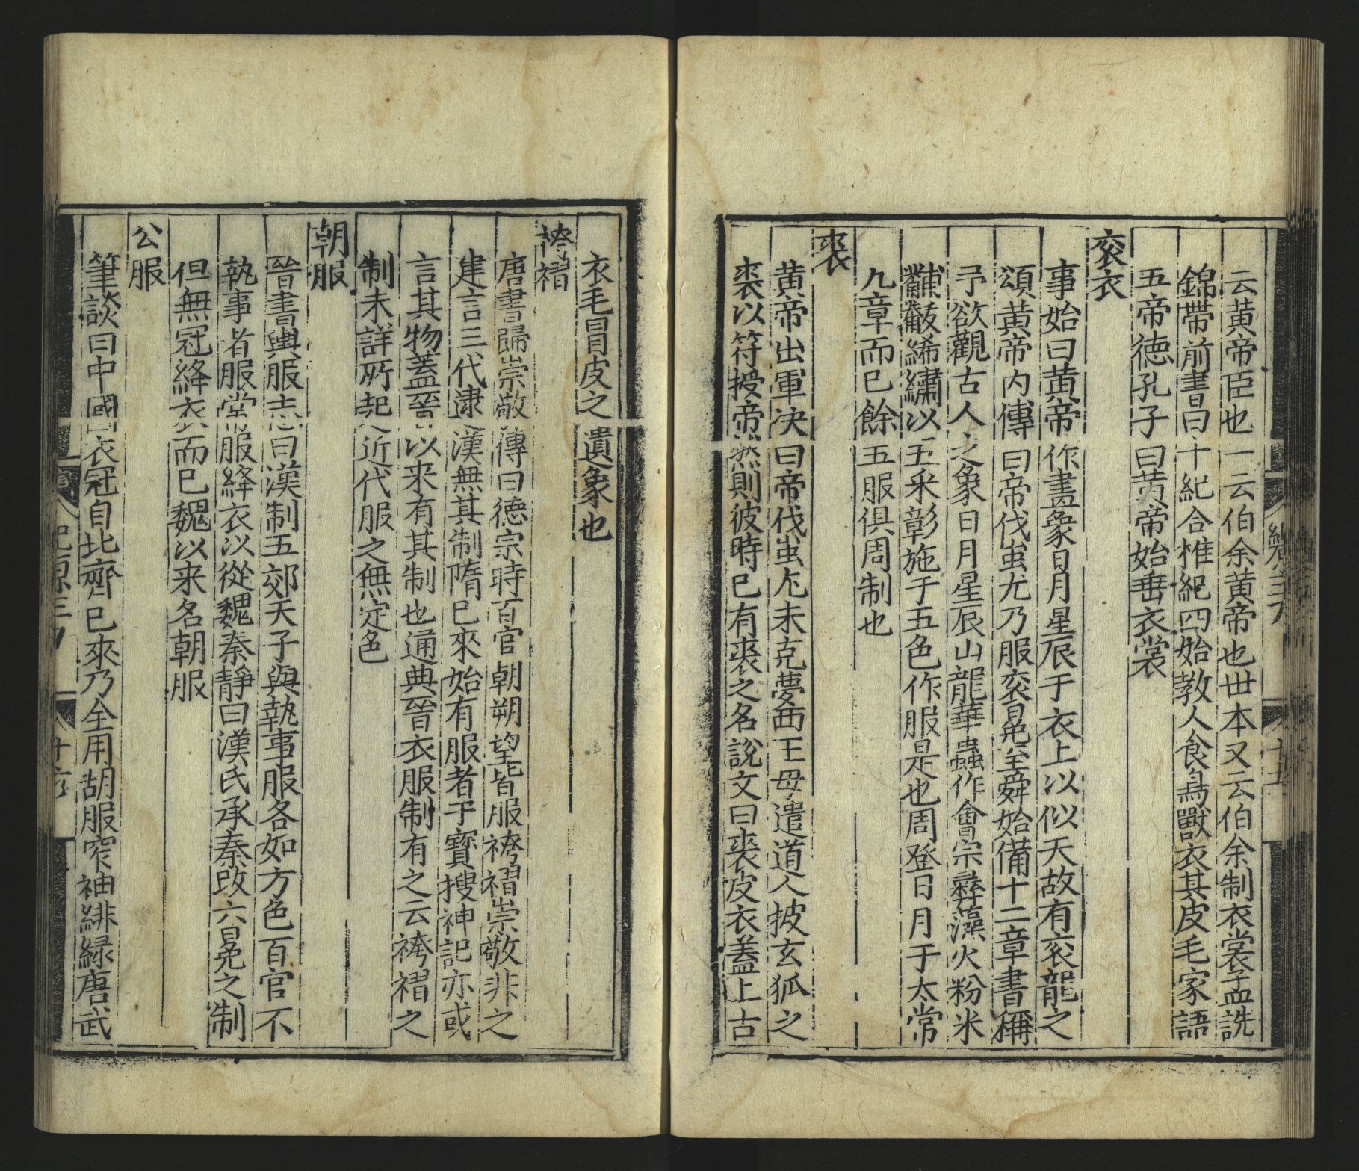 云黄帝臣也一云伯余黄帝也世本又云伯余制衣裳孟詵
錦帶前書曰十紀合椎紀四始教人食鳥獸衣其皮毛家語
五帝徳孔子曰黄帝始垂衣裳
衮衣
事始曰黄帝作畫象日月星辰于衣上以似天故有衮龍之
頌黄帝内傳曰帝伐蚩尤乃服衮冕至舜始備十二章書稱
予欲觀古人之象日月星辰山龍華蟲作會宗彝藻火粉米
黼黻絺繡以五采彰施于五色作服是也周登日月于太常
九章而已餘五服俱周制也
裘
黄帝出軍决曰帝伐蚩尤未克夢西王母遣道人披玄狐之
裘以符授帝然則彼時已有裘之名說文曰裘皮衣蓋上古
衣毛冒皮之遺象也
袴褶
唐書歸崇敬傳曰徳宗時百官朝朔望皆服袴褶崇敬非之
建言三代逮漢無其制隋已來始有服者于寳搜神記亦或
言其物蓋晉以来有其制也通典晉衣服制有之云袴褶之
制未詳所起近代服之無定色
朝服
晉書輿服志曰漢制五郊天子與執事服各如方色百官不
執事者服常服絳衣以從魏秦静曰漢氏承秦改六冕之制
但無冠絳衣而已魏以来名朝服
公服
筆談曰中國衣冠自北齊已來乃全用胡服窄袖緋緑唐武